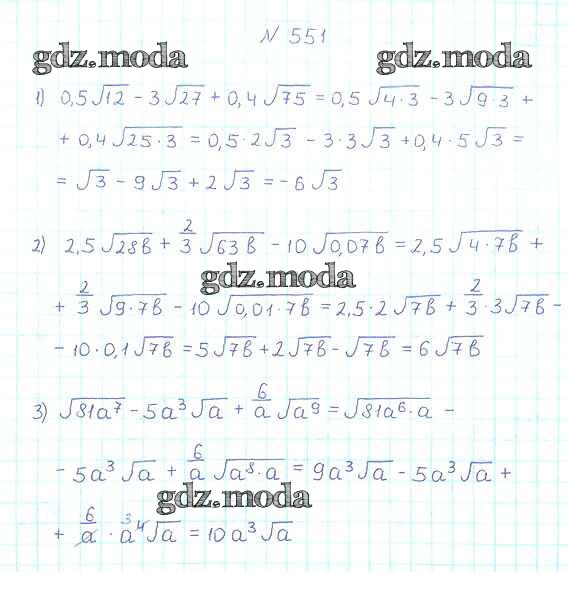 № 551
gdz.moda gdz.moda
1) 0,5√12 - 3√27 + 0,4√75 = 0,5√4·3 - 3√9·3 +
+ 0,4√25·3 = 0,5·2√3 - 3·3√3 + 0,4·5√3 =
= √3 - 9√3 + 2√3 = -6√3
2) 2,5√28b + 2/3√63b - 10√0,07b = 2,5√4·7b +
gdz.moda
+ 2/3√9·7b - 10√0,01·7b = 2,5·2√7b + 2/3·3√7b -
- 10·0,1√7b = 5√7b + 2√7b - √7b = 6√7b
3) √81a⁷ - 5a³√a + 6/a√a⁹ = √81a⁶·a -
- 5a³√a + 6/a√a⁸·a = 9a³√a - 5a³√a +
gdz.moda
+ 6/a · a³ ⁴√a = 10a³√a